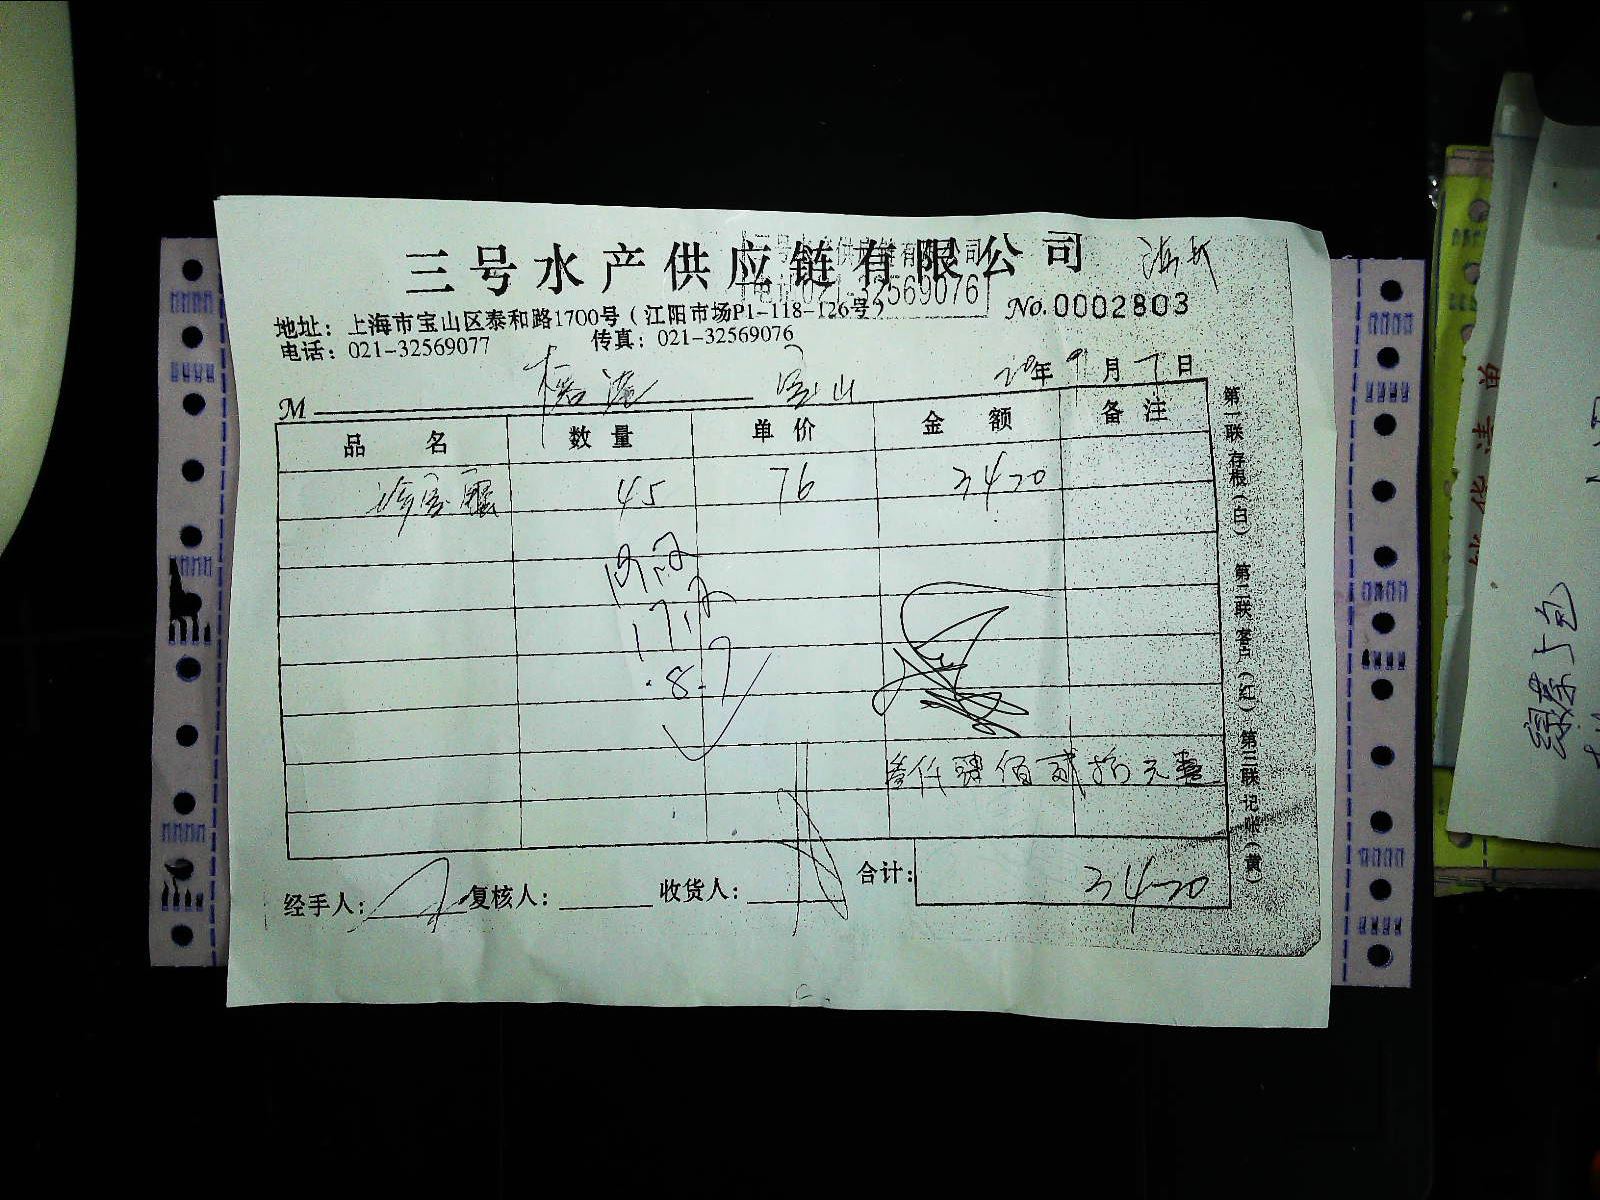 三号水产供应链有限公司
三号水产供应链有限公司
电话:021-32569076
地址：上海市宝山区泰和路1700号（江阳市场P1-118-126号）
No.0002803
电话：021-32569077 传真：021-32569076
M 宝山 20年9月7日
品名 数量 单价 金额 备注
45 76 3420
8.7
叁仟肆佰贰拾元整
经手人： 复核人： 收货人： 合计： 3420
第一联存根（白） 第二联客户（红） 第三联记账（黄）
绿 5包